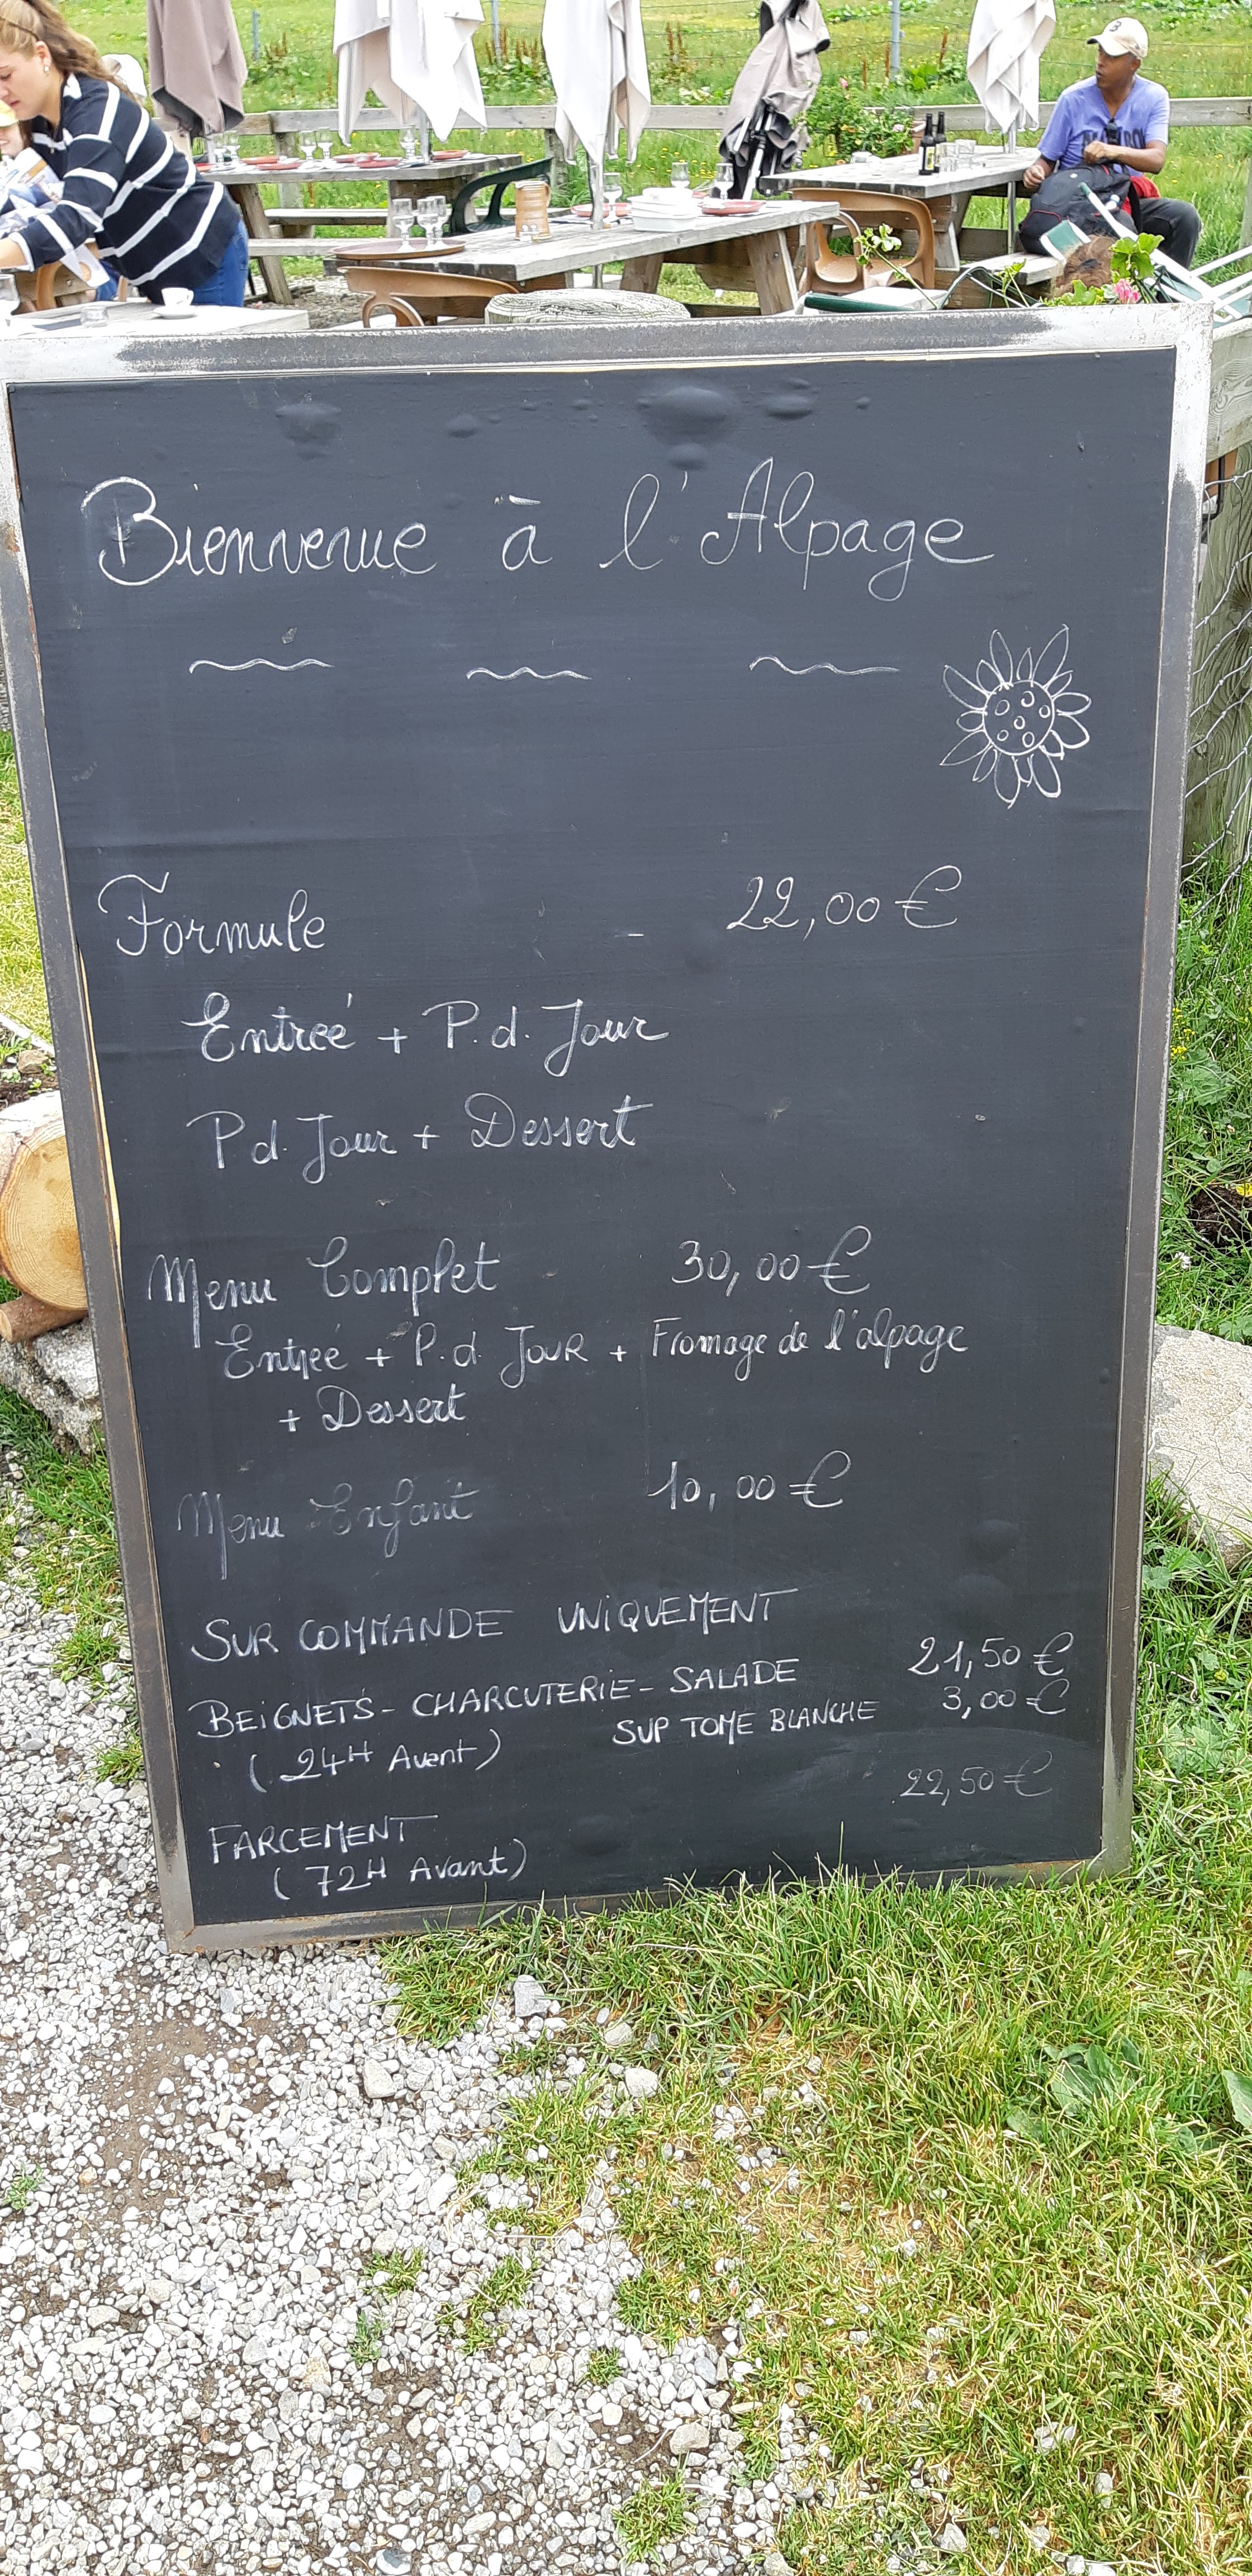 Bienvenue à l'Alpage
Formule - 22,00 €
Entrée + P.d. Jour
P d. Jour + Dessert
Menu Complet 30,00 €
Entrée + P.d. JOUR + Fromage de l'alpage
+ Dessert
Menu Enfant 10,00 €
SUR COMMANDE UNIQUEMENT
BEIGNETS - CHARCUTERIE - SALADE 21,50 €
(24H Avant) SUP TOME BLANCHE 3,00 €
FARCEMENT 22,50 €
(72H Avant)